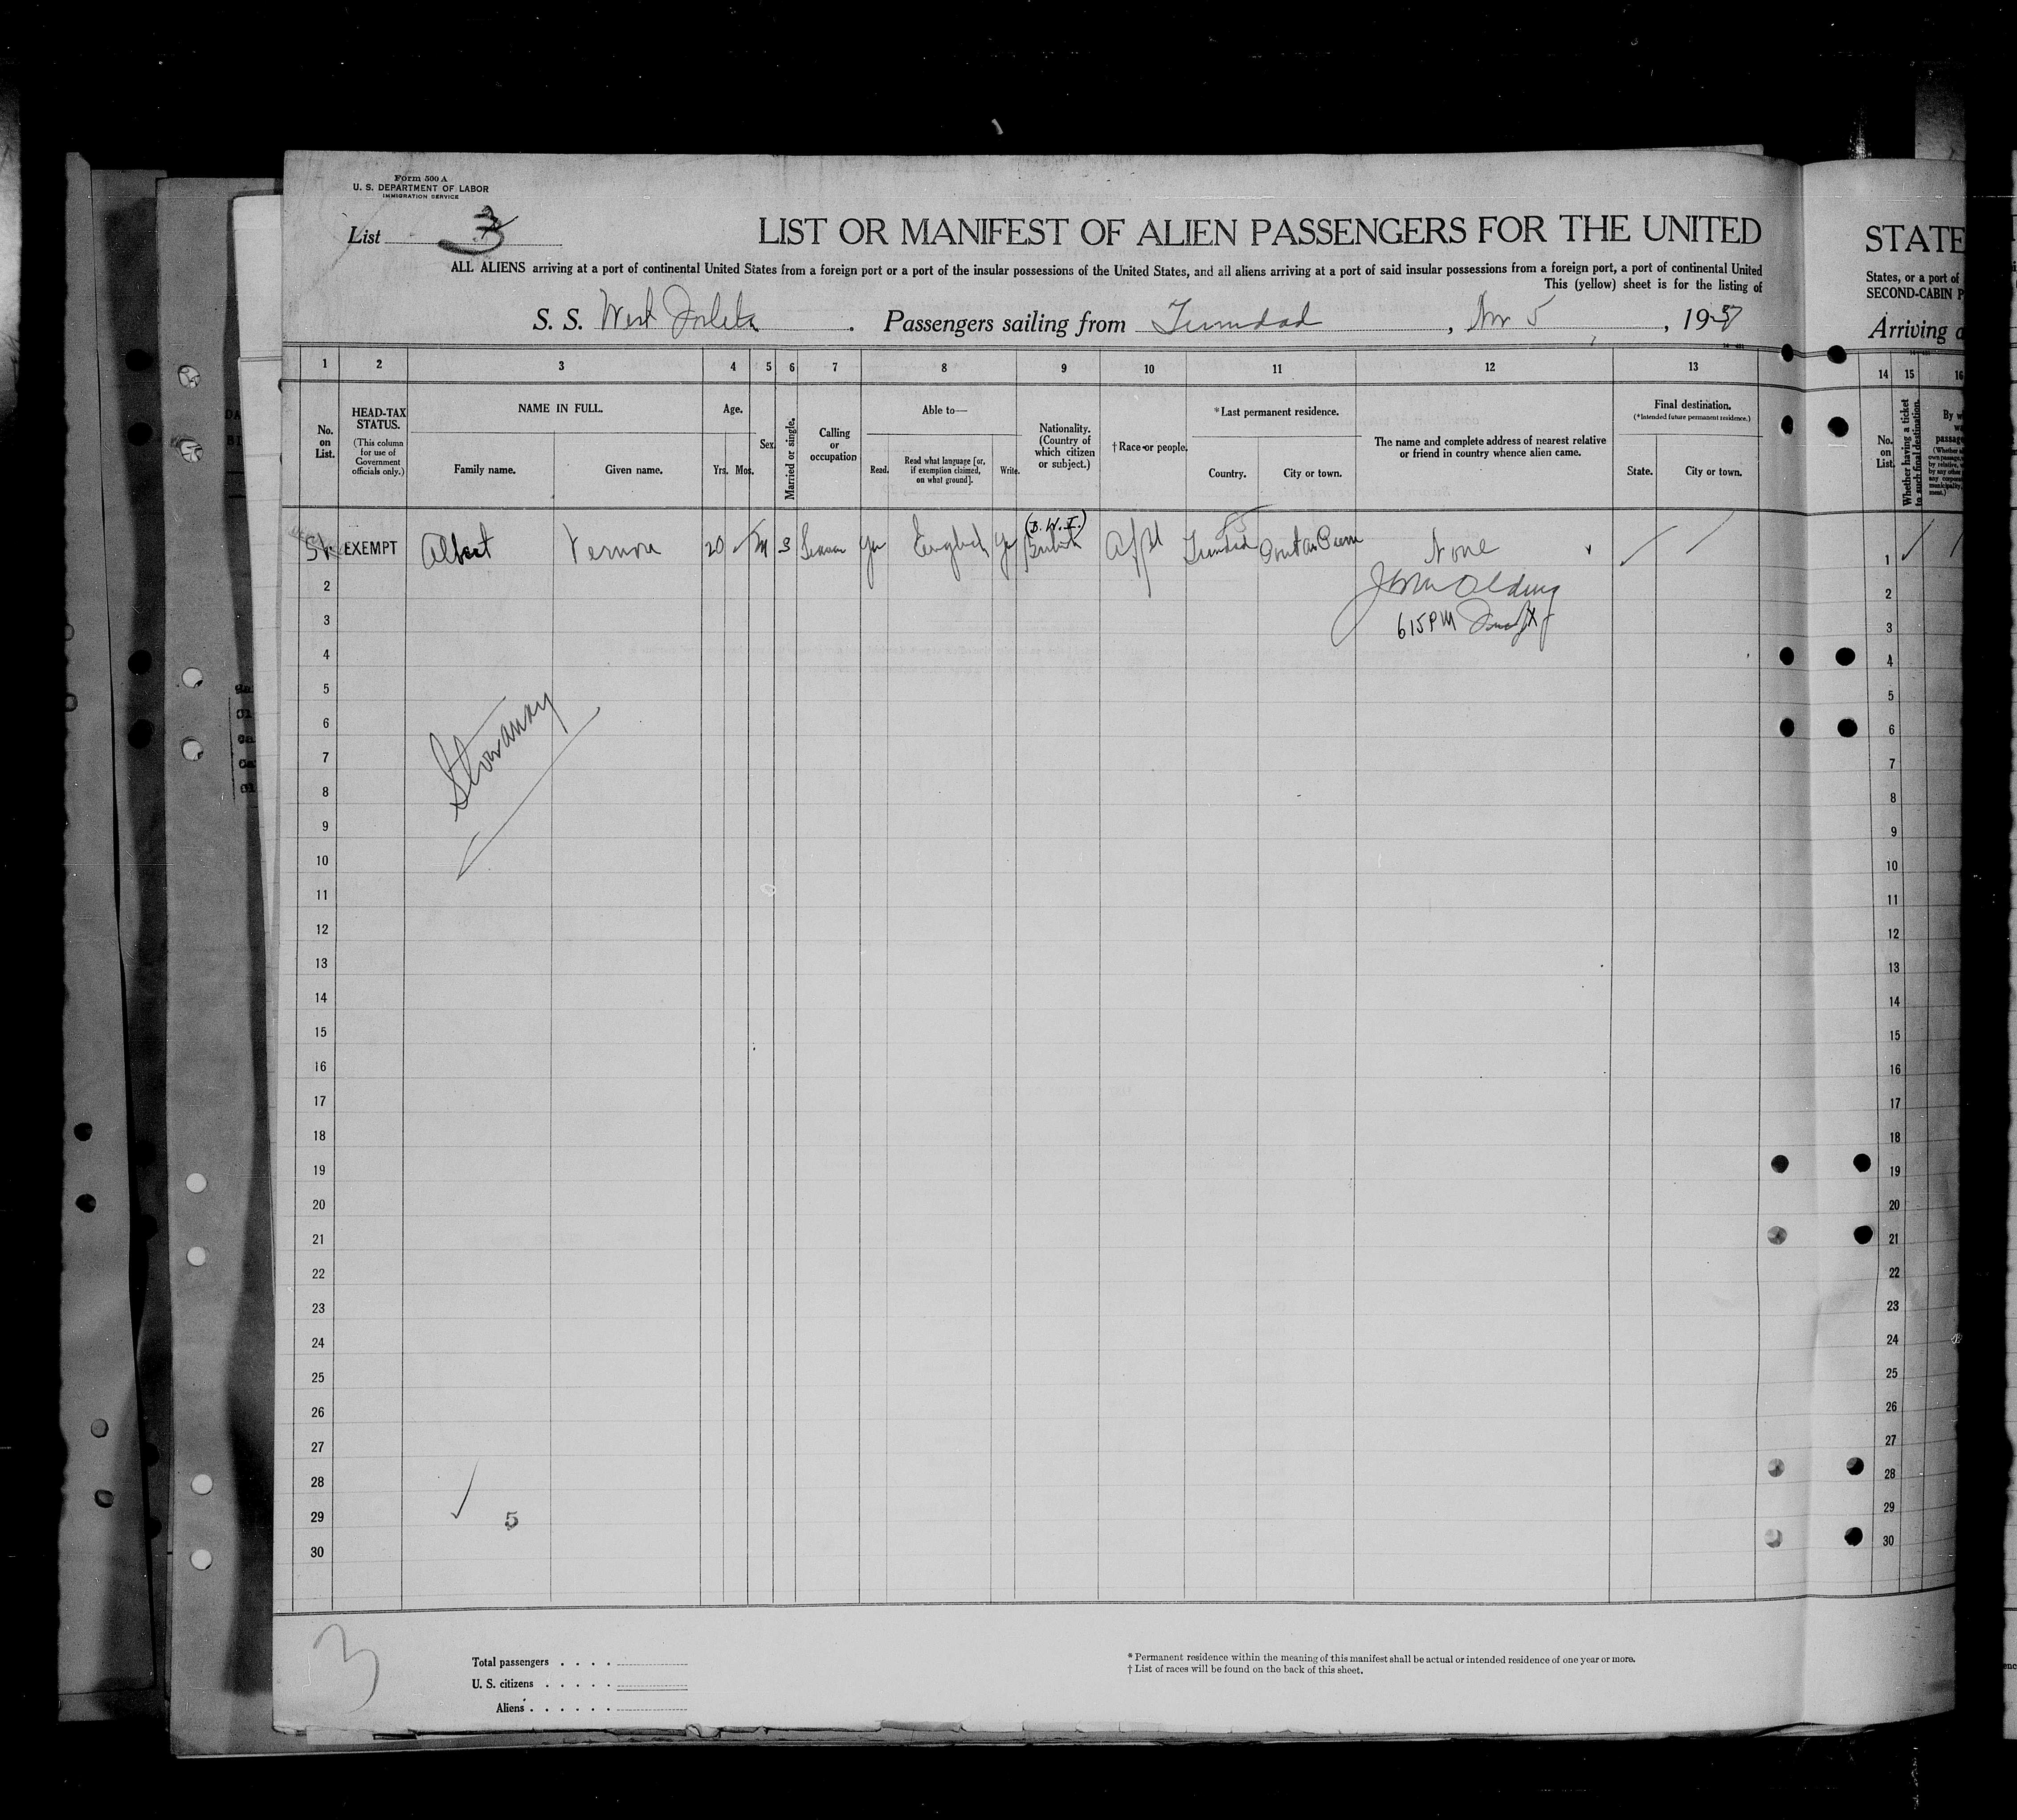 Form 500 A
U. S. DEPARTMENT OF LABOR
IMMIGRATION SERVICE
List 3
LIST OR MANIFEST OF ALIEN PASSENGERS FOR THE UNITED
STATE
ALL ALIENS arriving at a port of continental United States from a foreign port or a port of the insular possessions of the United States, and all aliens arriving at a port of said insular possessions from a foreign port, a port of continental United
States, or a port of
This (yellow) sheet is for the listing of
SECOND-CABIN P
S. S. West . Passengers sailing from Trinidad , Nov 5 , 19
Arriving a
1 2 3 4 5 6 7 8 9 10 11 12 13
14 15 16
No. on List.
HEAD-TAX STATUS.
(This column for use of Government officials only.)
NAME IN FULL.
Family name. Given name.
Age.
Yrs. Mos.
Sex.
Married or single.
Calling or occupation
Able to—
Read. Read what language [or, if exemption claimed, on what ground]. Write.
Nationality. (Country of which citizen or subject.)
†Race or people.
*Last permanent residence.
Country. City or town.
The name and complete address of nearest relative or friend in country whence alien came.
Final destination.
(*Intended future permanent residence.)
State. City or town.
No. on List.
Whether having a ticket to such final destination.
(B. W. I.)
EXEMPT Albert Vernon 20 M S Seaman Yes English Yes British Afr Trinidad Port au None
1
2 John Olding
2
3 615 PM
3
4
4
5
5
6
6
Stowaway
7
7
8
8
9
9
10
10
11
11
12
12
13
13
14
14
15
15
16
16
17
17
18
18
19
19
20
20
21
21
22
22
23
23
24
24
25
25
26
26
27
27
28
28
29 5
29
30
30
3
Total passengers . . . .
U. S. citizens . . . . .
Aliens . . . . . .
* Permanent residence within the meaning of this manifest shall be actual or intended residence of one year or more.
† List of races will be found on the back of this sheet.